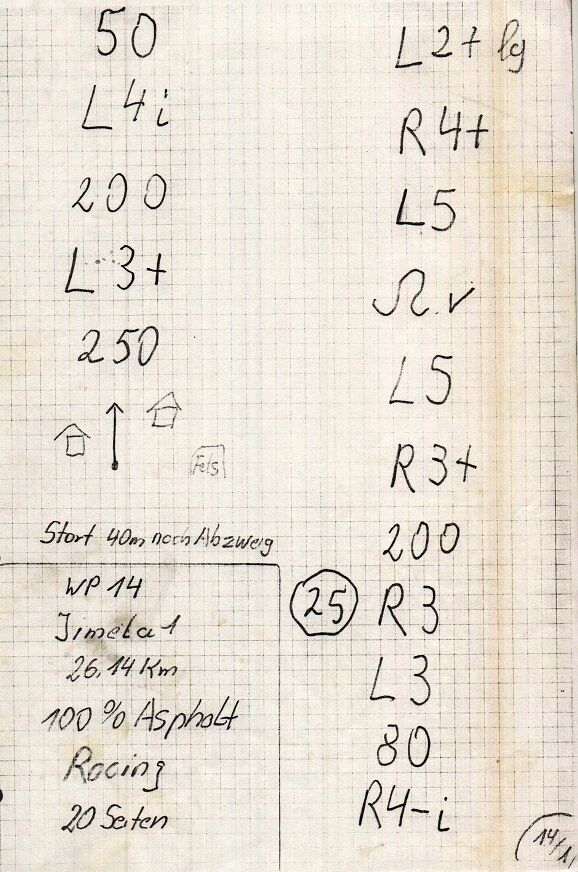 50
L4i
200
L3+
250
Fels
Start 40m nach Abzweig
WP 14
Jimeta 1
26,14 Km
100 % Asphalt
Racing
20 Seiten
L2+ lg
R4+
L5
Ω. v
L5
R3+
200
25 R3
L3
80
R4-i
14/1